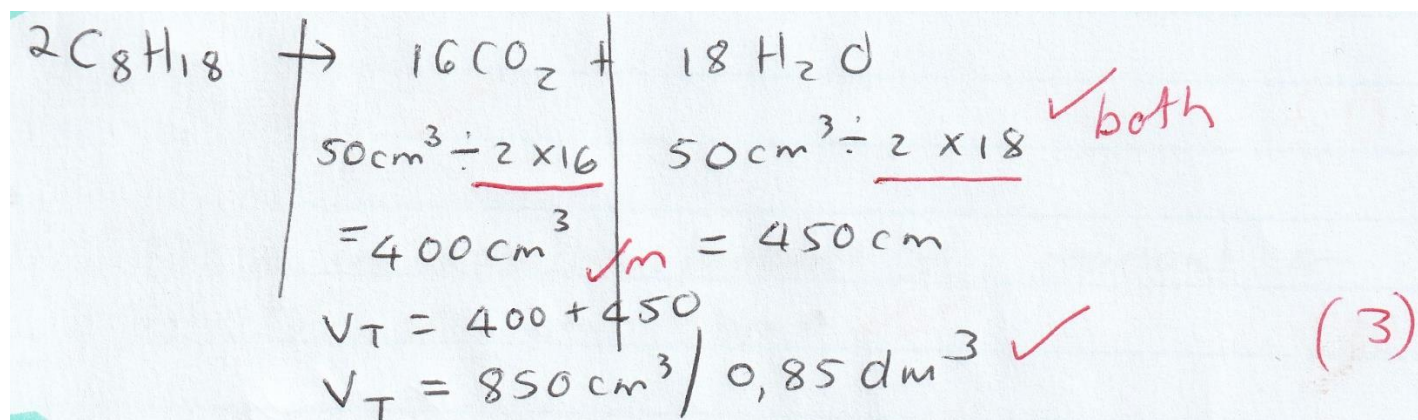 2C₈H₁₈ → 16CO₂ + 18H₂O
50cm³ ÷ 2 ×16 50cm³ ÷ 2 ×18 ✓both
=400cm³ ✓m = 450cm
V_T = 400 + 450
V_T = 850cm³/ 0,85dm³ ✓ (3)